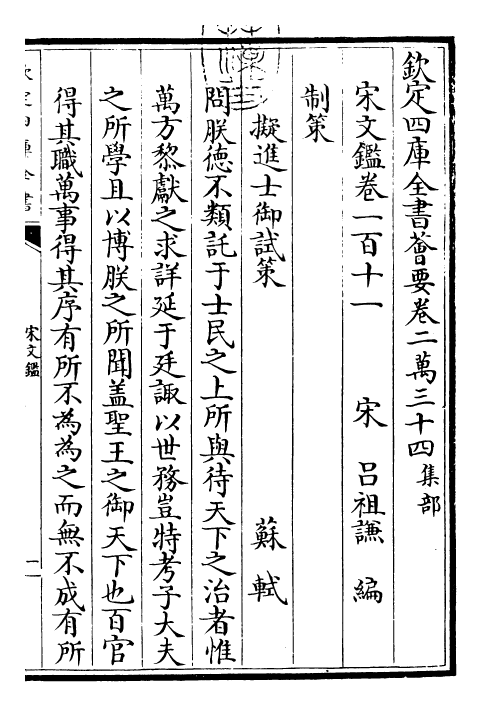 欽定四庫全書薈要卷二萬三十四集部
宋文鑑卷一百十一 宋 呂祖謙 編
制策
擬進士御試策 蘇軾
問朕德不類託于士民之上所與待天下之治者惟
萬方黎獻之求詳延于廷諏以世務豈特考子大夫
之所學且以博朕之所聞盖聖王之御天下也百官
得其職萬事得其序有所不為為之而無不成有所
欽定四庫全書
宋文鑑
一